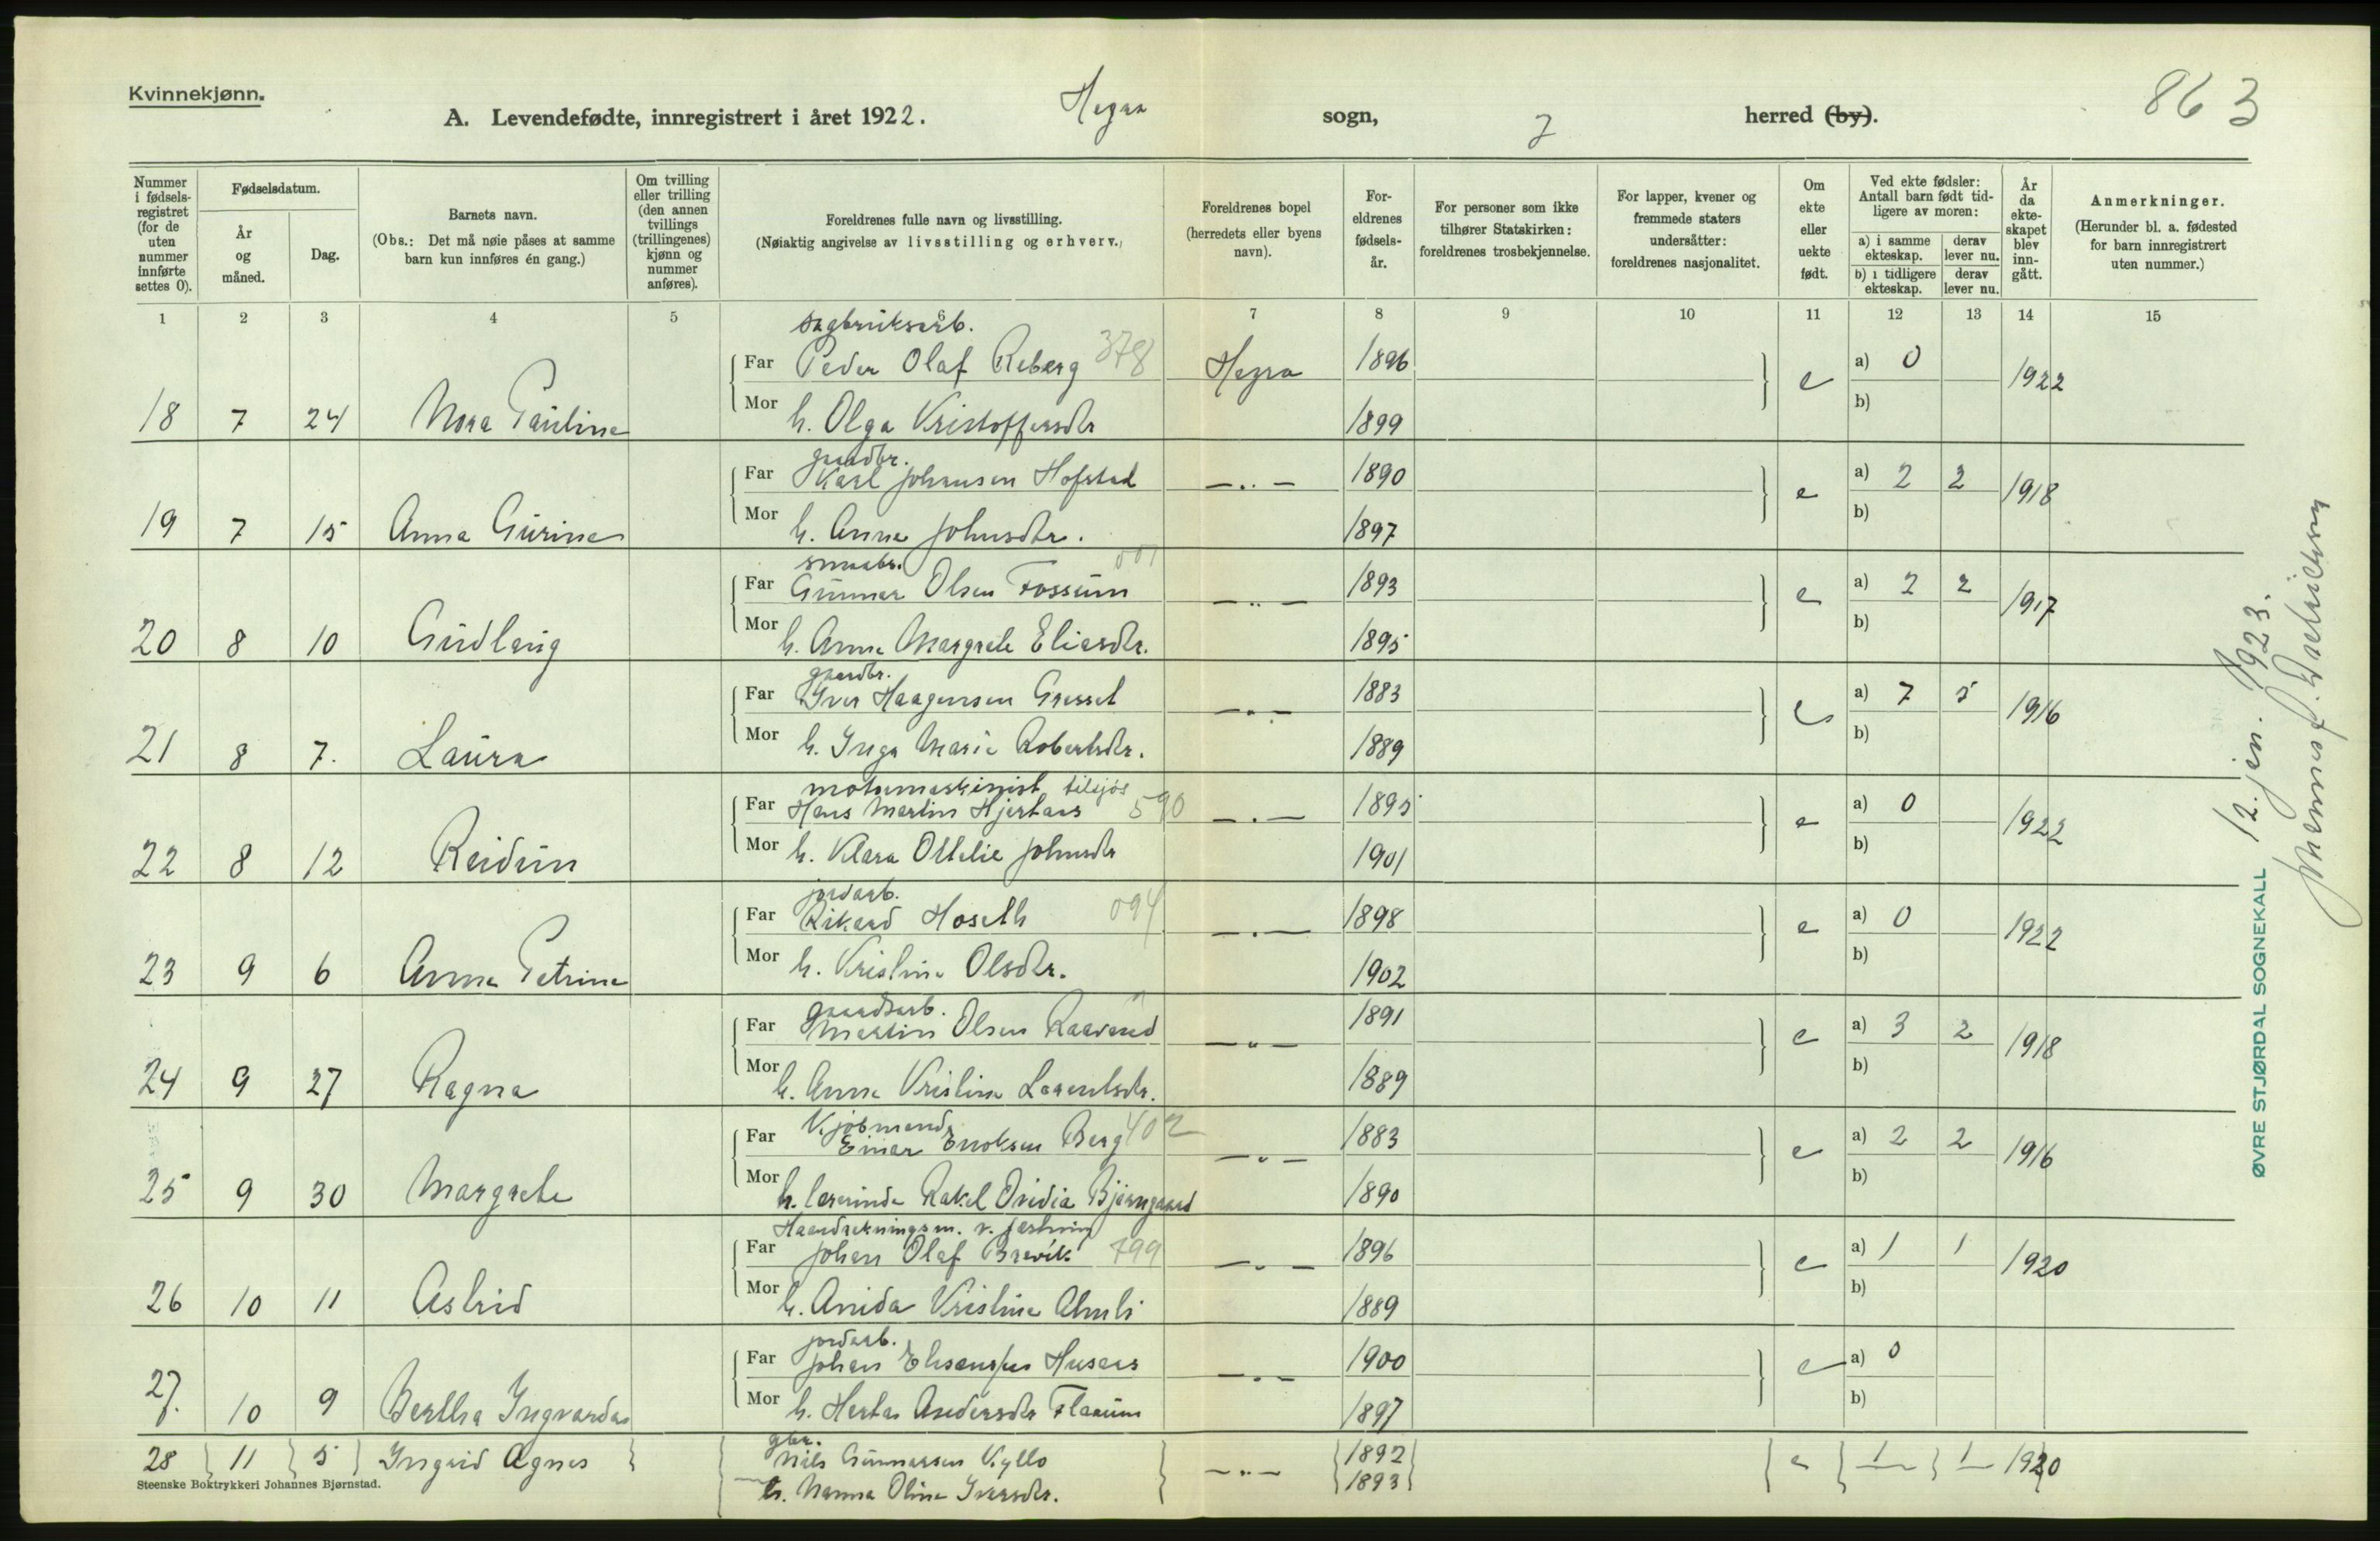 Kvinnekjønn.
A. Levendefødte, innregistrert i året 1922. Hegra sogn, 7 herred (by). 863
Nummer i fødselsregistret (for de uten nummer innførte settes 0).
Fødselsdatum.
År og måned.
Dag.
Barnets navn.
(Obs.: Det må nøie påses at samme barn kun innføres én gang.)
Om tvilling eller trilling (den annen tvillings (trillingenes) kjønn og nummer anføres).
Foreldrenes fulle navn og livsstilling.
(Nøiaktig angivelse av livsstilling og erhverv.)
Foreldrenes bopel (herredets eller byens navn).
Foreldrenes fødselsår.
For personer som ikke tilhører Statskirken: foreldrenes trosbekjennelse.
For lapper, kvener og fremmede staters undersåtter: foreldrenes nasjonalitet.
Om ekte eller uekte født.
Ved ekte fødsler: Antall barn født tidligere av moren:
a) i samme ekteskap. derav lever nu.
b) i tidligere ekteskap. derav lever nu.
År da ekteskapet blev inngått.
Anmerkninger.
(Herunder bl. a. fødested for barn innregistrert uten nummer.)
1 2 3 4 5 6 7 8 9 10 11 12 13 14 15
sagbruksarb.
Far Peder Olaf Reberg 378 Hegra 1896 a) 0
18 7 24 Nora Pauline Mor h. Olga Kristoffersdtr 1899 e b) 1922
gaardbr.
Far Karl Johansen Hofstad —"— 1890 a) 2 2
19 7 15 Anna Gurine Mor h. Anna Johnsdtr. 1897 e b) 1918
smaabr.
Far Gunnar Olsen Fossum —"— 1893 a) 2 2
20 8 10 Gudlaug Mor h. Anna Margrete Eliasdtr. 1895 e b) 1917
gaardbr.
Far Iver Haagensen Gresset —"— 1883 a) 7 5
21 8 7. Laura Mor h. Inga Marie Robertsdtr. 1889 e b) 1916
motormaskinist tilsjøs
Far Hans Martin Hjertaas 590 —"— 1895 a) 0
22 8 12 Reidun Mor h. Klara Ottelie Johnsdtr 1901 e b) 1922
jordarb.
Far Rikard Hoseth 094 —"— 1898 a) 0
23 9 6 Anna Petrine Mor h. Kristine Olsdtr. 1902 e b) 1922
gaardsarb.
Far Martin Olsen Raavand —"— 1891 a) 3 2
24 9 27 Ragna Mor h. Anna Kristine Larentsdtr. 1889 e b) 1918
Kjøbmand
Far Einar Enoksen Berg 402 —"— 1883 a) 2 2
25 9 30 Margrete Mor h. lærerinde Rakel Ovidia Bjørngaard 1890 e b) 1916
Haandrekningsm. v. festning
Far Johan Olaf Brevik 799 —"— 1896 a) 1 1
26 10 11 Astrid Mor h. Anida Kristine Almli 1889 e b) 1920
jordarb.
Far Johan Eliseus Husaas —"— 1900 a) 0
27. 10 9 Bertha Ingvarda Mor h. Herta Andersdtr Flaaum 1897 e b)
gbr.
28 11 5 Ingrid Agnes Nils Gunnarsen Kyllo —"— 1892 e 1 1 1920
h. Nanna Oline Iversdtr. 1893
Steenske Boktrykkeri Johannes Bjørnstad.
ØVRE STJØRDAL SOGNEKALL 12. jan. 1923.